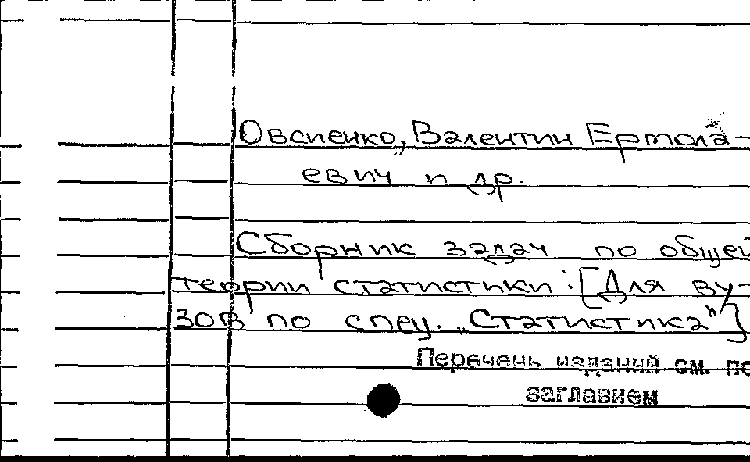 Овсиенко, Валентин Ермола-
евич и др.
Сборник задач по общей
теории статистики: [Для ву-
зов по спец. „Статистика"]
Перечень изданий см. по
заглавием